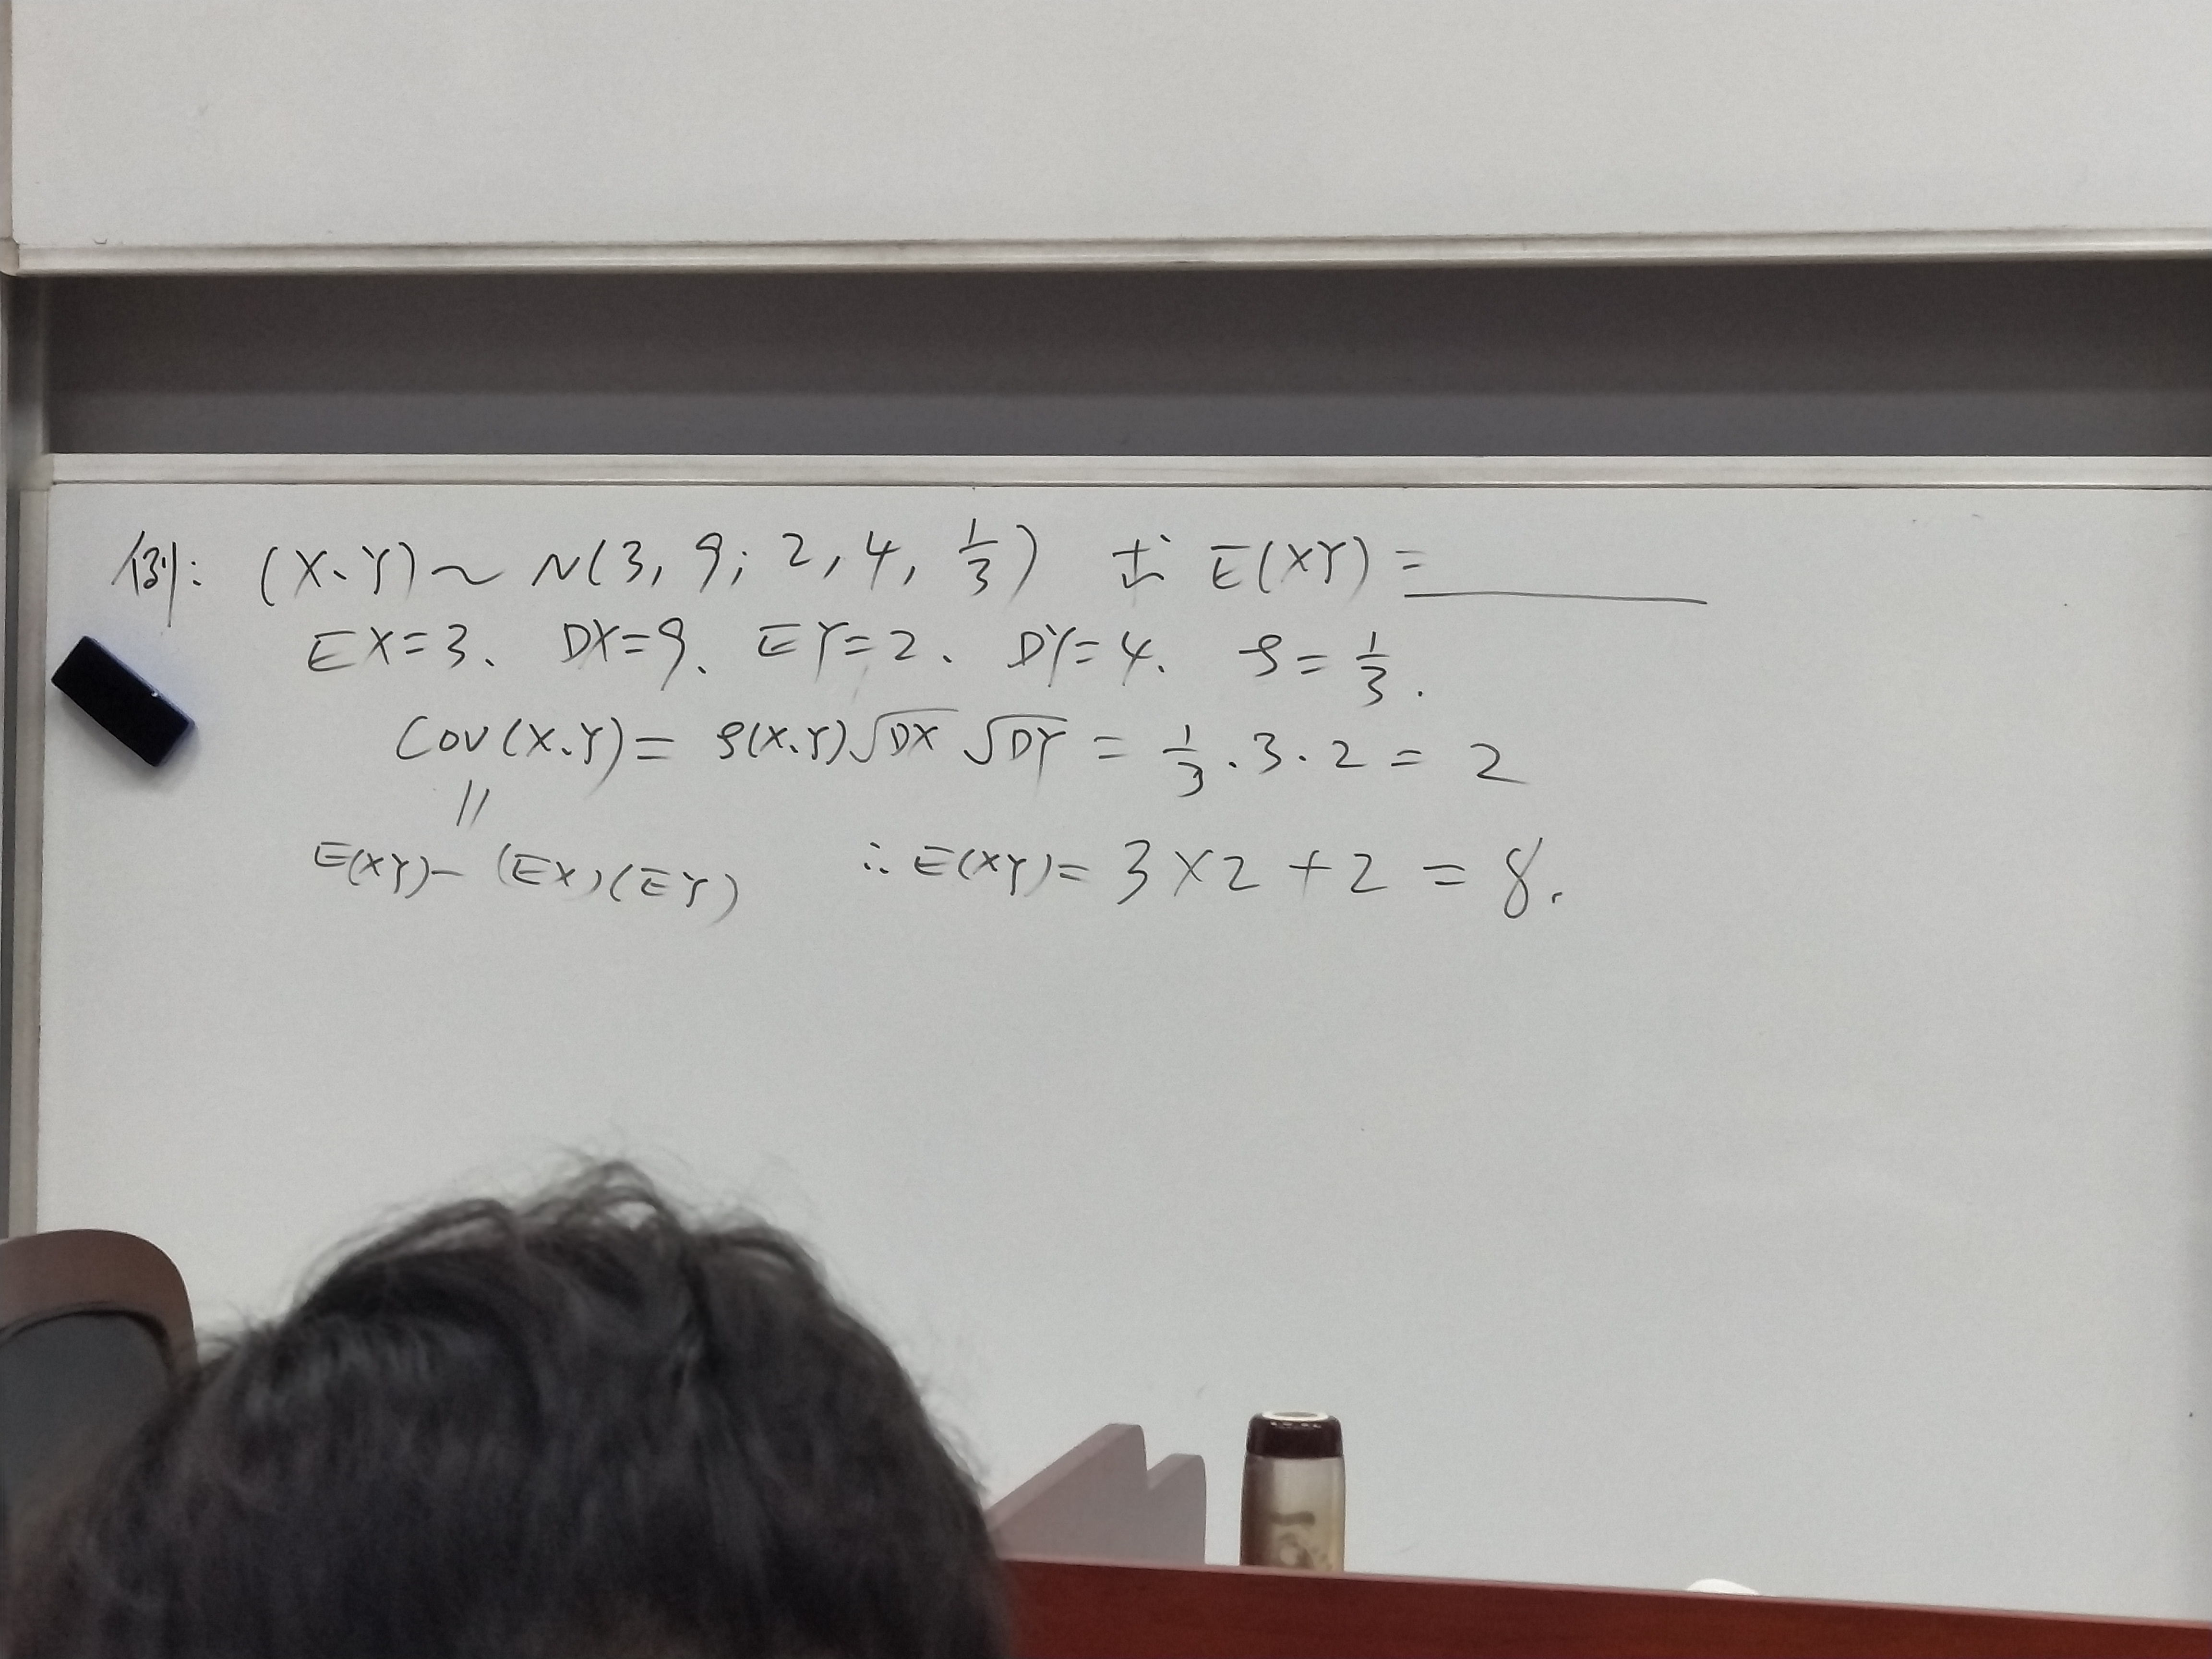 例: (X、Y)~N(3, 9; 2, 4, 1/3) 求 E(XY)=______
EX=3、 DX=9、 EY=2、 DY=4. ρ=1/3.
Cov(X、Y)= ρ(X、Y)√DX √DY = 1/3 · 3 · 2 = 2
||
E(XY)-(EX)(EY) ∴ E(XY)= 3×2+2 = 8.